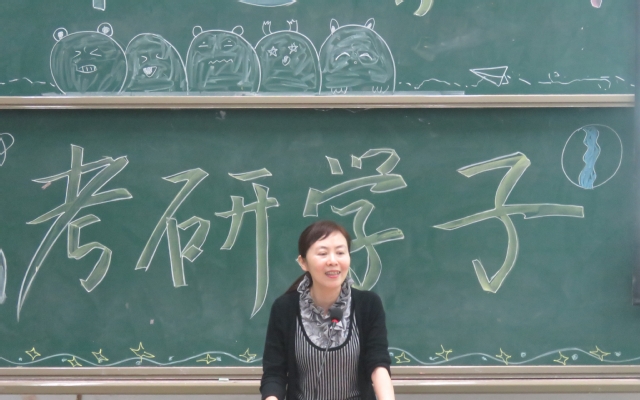 考研学子